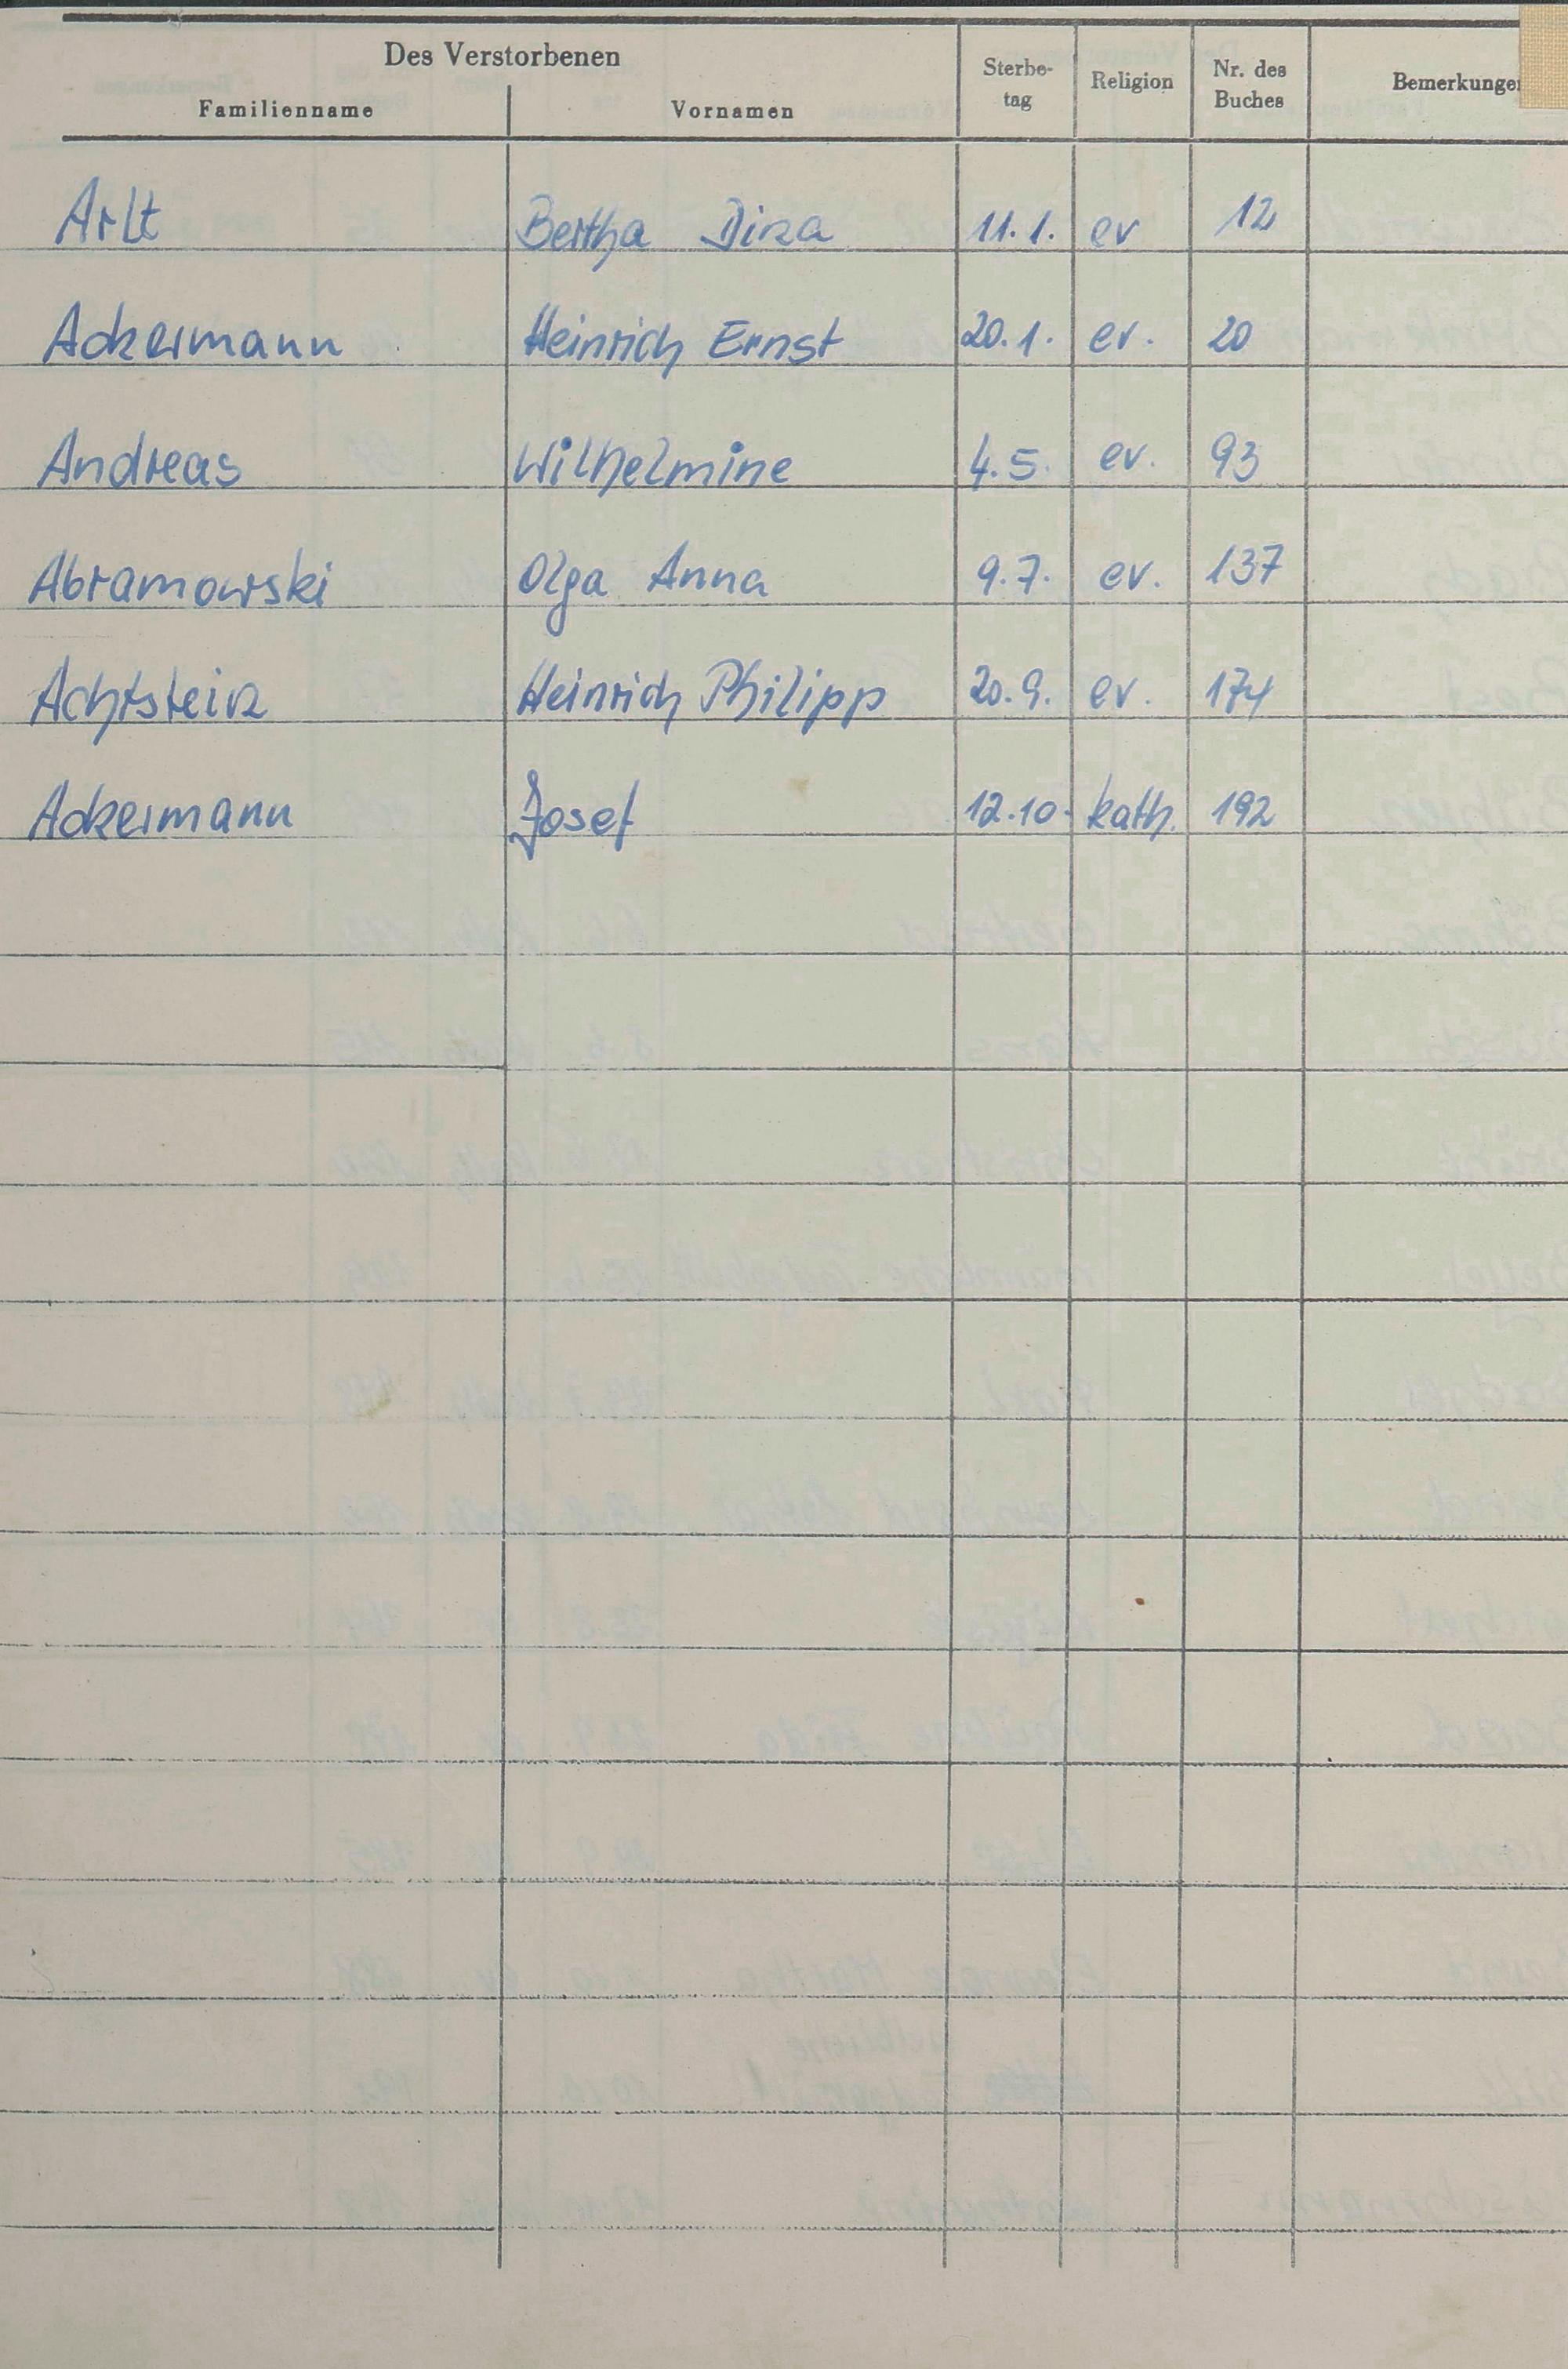 Des Verstorbenen
Familienname Vornamen Sterbe-tag Religion Nr. des Buches Bemerkunge
Arlt Bertha Dina 11.1. ev 12
Ackermann Heinrich Ernst 20.1. ev. 20
Andreas Wilhelmine 4.5. ev. 93
Abramowski Olga Anna 9.7. ev. 137
Achtstein Heinrich Philipp 20.9. ev. 174
Ackermann Josef 12.10. kath. 192